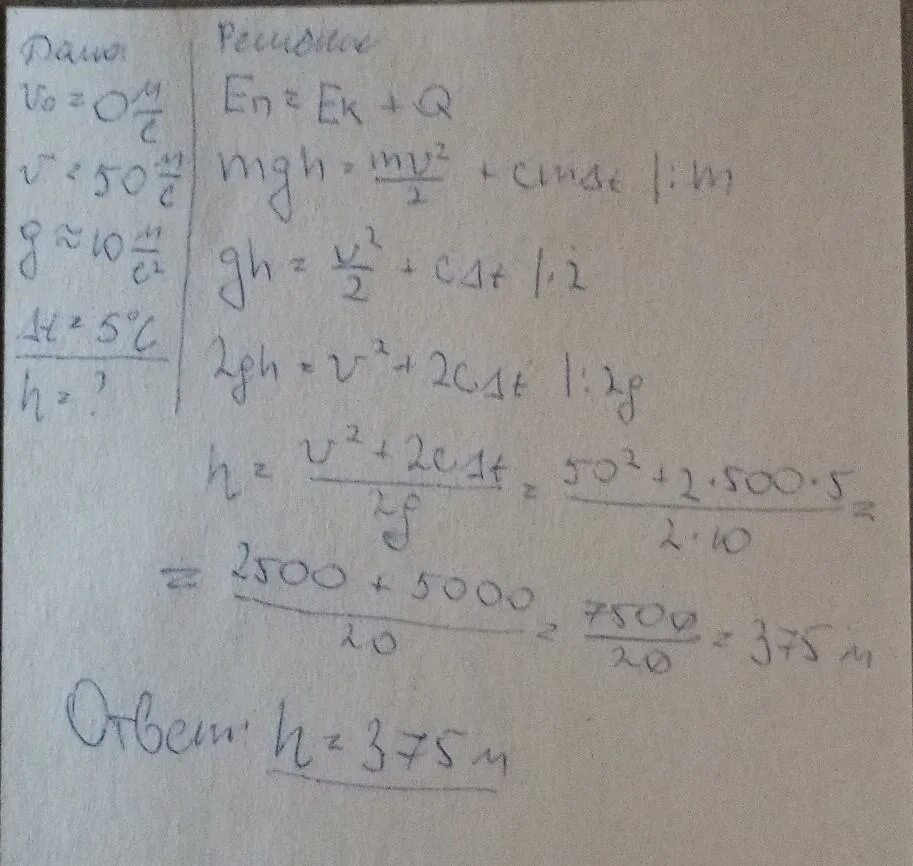 Дано:
v₀ = 0 м/с
v = 50 м/с
g ≈ 10 м/с²
Δt = 5°C
h = ?
Решение
Eп = Eк + Q
mgh = mv²/2 + cmΔt |:m
gh = v²/2 + cΔt |·2
2gh = v² + 2cΔt |:2g
h = (v² + 2cΔt)/2g = (50² + 2·500·5)/(2·10) =
= (2500 + 5000)/20 = 7500/20 = 375 м
Ответ: h = 375 м